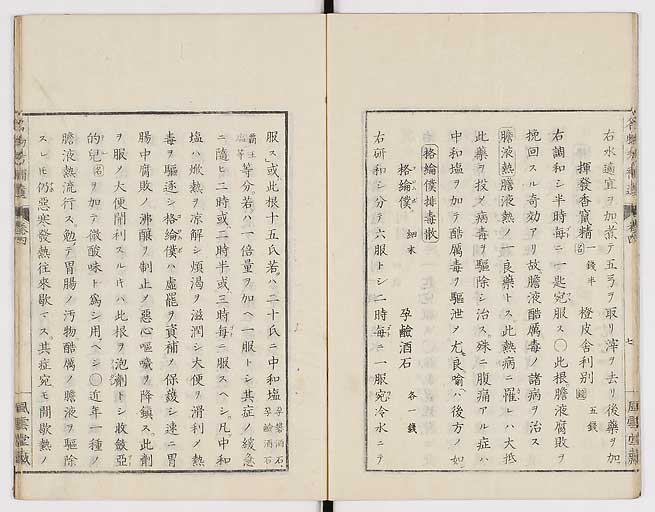 右水適宜ヲ加煮テ五弓ヲ取リ滓ヲ去リ後藥ヲ加
揮發香竄精 一錢半 橙皮舎利別 五錢
右調和シ半時毎ニ一匙宛服ス〇此根膽液腐敗ヲ
挽回スル奇効アリ故膽液酷厲毒ノ諸病ヲ治ス
膽液熱膽液熱ノ一良藥トス此熱病ニ罹レハ大抵
此藥ヲ投メ病毒ヲ驅除シ治ス殊ニ腹痛アル症ハ
中和塩ヲ加テ酷厲毒ヲ驅泄メ尤良喻ハ後方ノ如
格綸僕排毒散
格綸僕 細末 孕鹼酒石 各一錢
右研和シ分テ六服トシ二時毎ニ一服宛冷水ニテ
服ス或此根十五氏若ハ二十氏ニ中和塩 孕礬酒石 孕鹼酒石
等分若ハ一倍量ヲ加ヘ一服トシ其症ノ緩急
ニ隨ヒ二時或二時半或三時毎ニ服スヘシ凡中和
塩ハ焮熱ヲ凉解シ煩渇ヲ滋潤シ大便ヲ滑利メ熱
毒ヲ驅逐シ格綸僕ハ虚罷ヲ資補メ保護シ速ニ胃
腸中腐敗ノ沸釀ヲ制止メ惡心嘔噦ヲ降鎮ス此劑
ヲ服メ大便閙利スルキハ此根ヲ泡劑トシ收斂亞
的兒 名 ヲ加テ微酸味ト爲シ用ヘシ〇近年一種ノ
膽液熱流行ス勉テ胃腸ノ汚物酷厲ノ膽液ヲ驅除
スレモ仍惡寒發熱往來歇マス其症宛モ間歇熱ノ
卷四
七
風雲堂藏
卷四
風雲堂藏